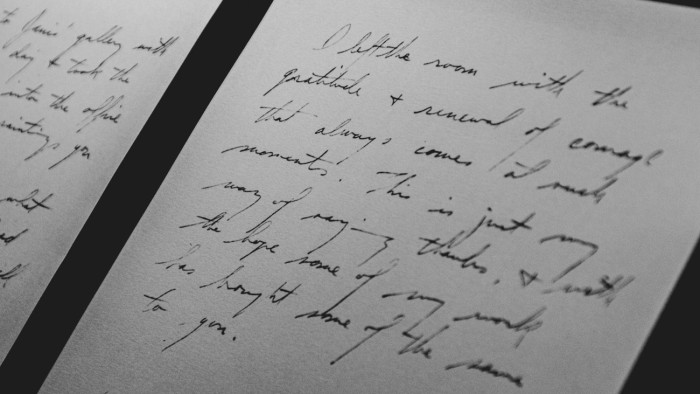 to Janis' gallery with
day & took the
into the office
paintings you
what
I left the room with the
gratitude & renewal of courage
that always comes at such
moments. This is just my
way of saying thanks, & with
the hope some of my work
has brought some of the same
to you.